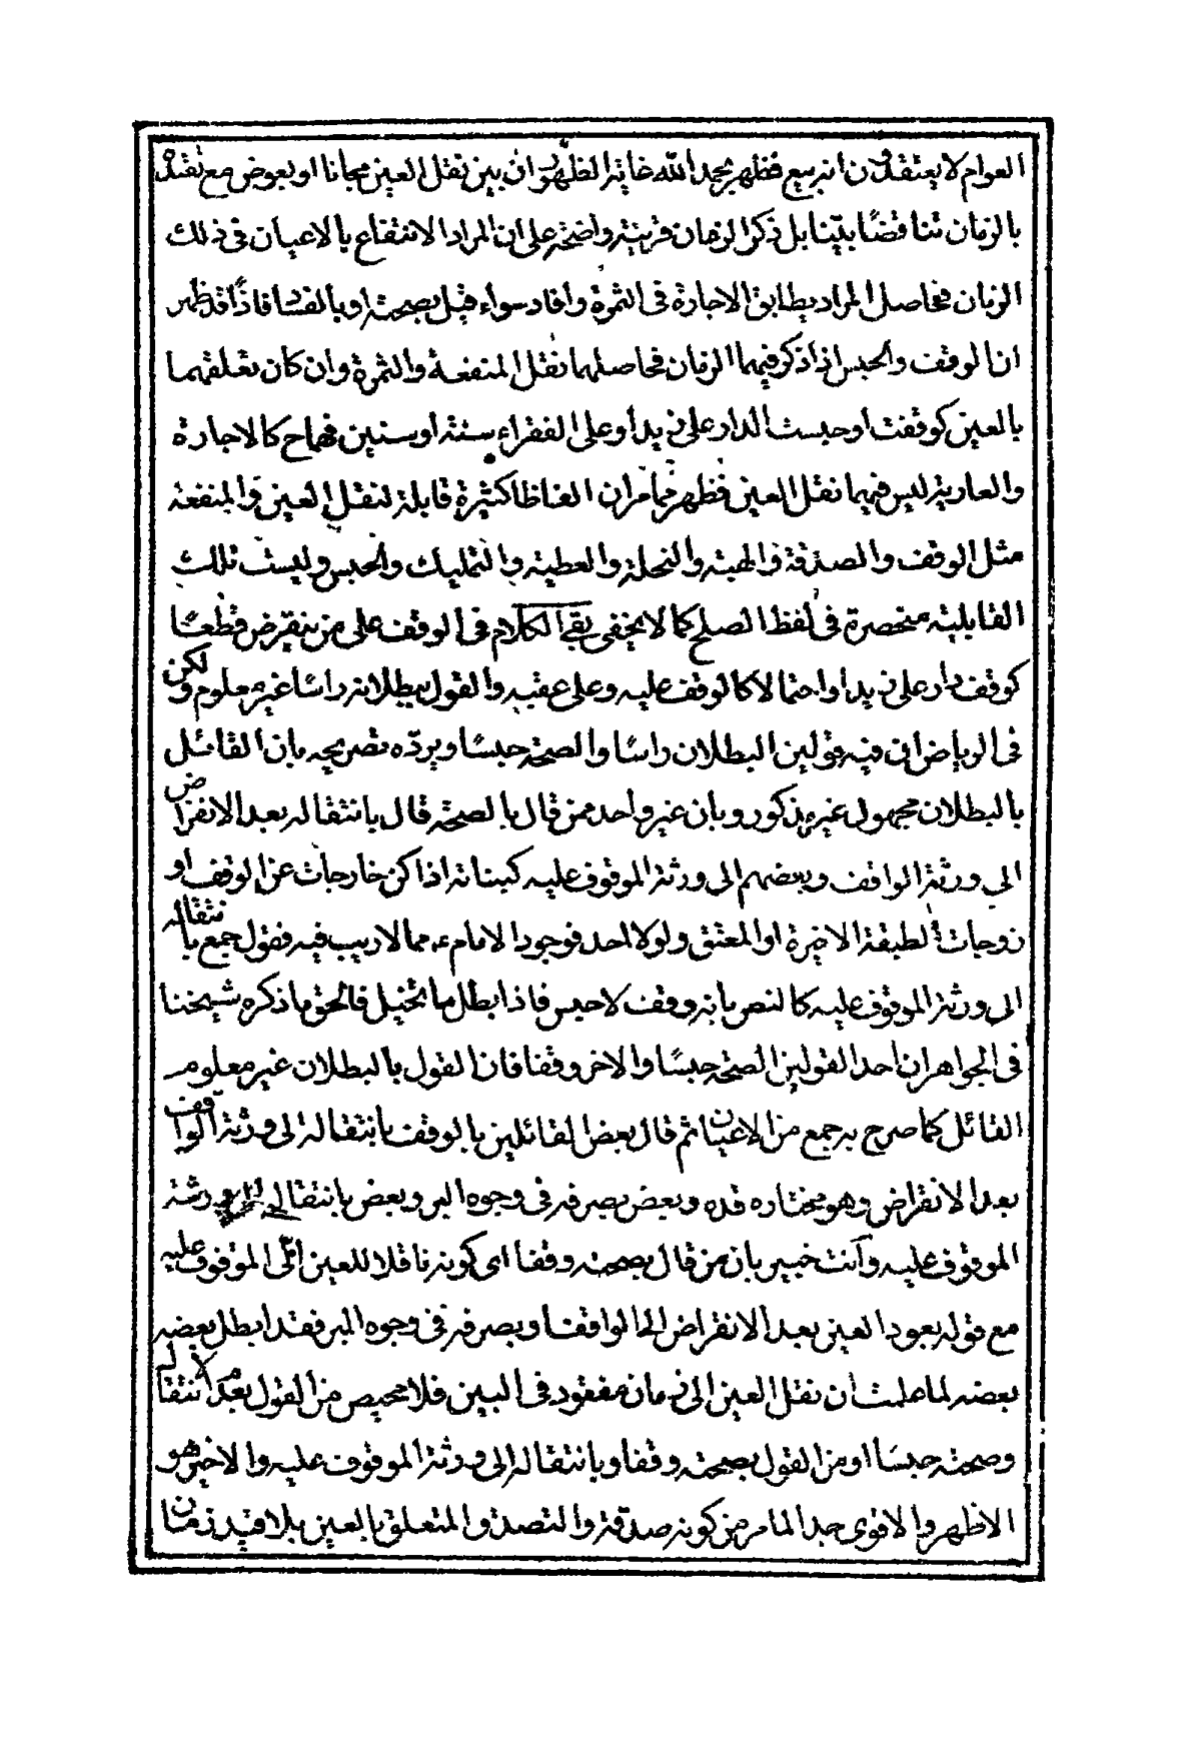 العوام لا يعتقدون انه بيع فظهر بحمد الله غاية الظهور ان بين نقل العين مجانا او بعوض مع تقيده
بالزمان تناقضًا بيّنا بل ذكر الزمان قرينة واضحة على ان المراد الانتفاع بالاعيان فى ذلك
الزمان فحاصل المراد يطابق الاجارة فى الثمرة وافاد سواء قيل بصحته او بالفساد فاذًا قد ظهر
ان الوقف والحبس اذا ذكر فيهما الزمان فحاصلهما نقل المنفعة والثمرة وان كان تعلقهما
بالعين كوقفت او حبست الدار على زيد او على الفقراء سنة او سنين فهما ح كالاجارة
والعارية ليس فيهما نقل العين فظهر مما مر ان الفاظا كثيرة قابلة لنقل العين والمنفعة
مثل الوقف والصدقة والهبة والنحلة والعطية والتمليك والحبس وليست تلك
القابلية منحصرة فى لفظ الصلح كما لا يخفى بقى الكلام فى الوقف على من ينقرض قطعًا
كوقف دار على زيد او احتمالا كالوقف عليه وعلى عقبه والقول ببطلانه راسًا غير معلوم ولكن
فى الرياض ان فيه قولين البطلان راسًا والصحة حبسًا ويردّه تصريحه بان القائل
بالبطلان مجهول غير مذكور وبان غير واحد ممن قال بالصحة قال بانتقاله بعد الانقراض
الى ورثة الواقف وبعضهم الى ورثة الموقوف عليه كبناته اذا كن خارجات عن الوقف او
زوجات الطبقة الاخيرة او المعتق ولولا احد فوجود الامام ء مما لا ريب فيه فقول جمع بانتقاله
الى ورثة الموقوف عليه كالنص بانه وقف لا حبس فاذا بطل ما تخيل فالحق ما ذكره شيخنا
فى الجواهر ان احد القولين الصحة حبسًا والاخر وقفا فان القول بالبطلان غير معلوم
القائل كما صرح به جمع من الاعيان ثم قال بعض القائلين بالوقف بانتقاله الى ورثة الواقف
بعد الانقراض وهو مختاره قده وبعض بصرفه فى وجوه البر وبعض بانتقاله الى ورثة
الموقوف عليه وأنت خبير بان من قال بصحته وقفا اى كونه ناقلا للعين الى الموقوف عليه
مع قوله بعود العين بعد الانقراض الى الواقف او بصرفه فى وجوه البر فقد ابطل بعضه
بعضه لما علمت ان نقل العين الى زمان مفقود فى البين فلا محيص من القول بعدم الانتقال
وصحته حبسًا او من القول بصحته وقفا وبانتقاله الى ورثة الموقوف عليه والاخير هو
الاظهر والاقوى جدا لما مر من كونه صدقة والتصدق المتعلق بالعين بلا قيد زمان